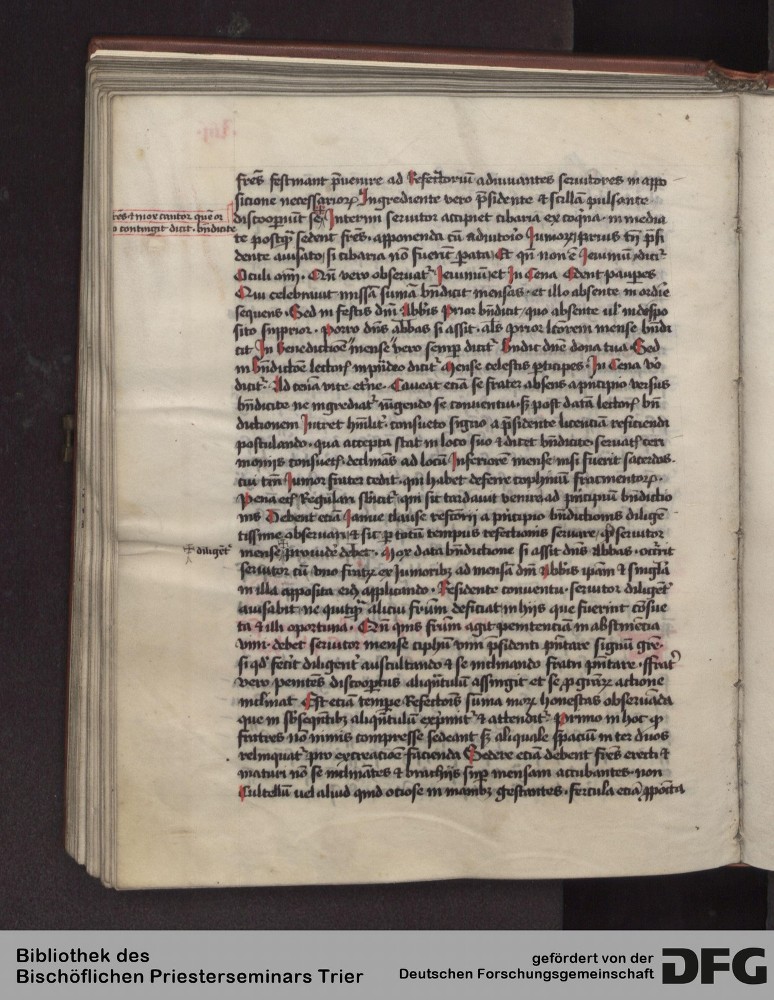 fres festinant pueuire ad Refectoriu adiuuantes seruitores in appo
sicione necessarior Ingrediente vero psidente & scilla pulsante
res & mox cantor que or
discoopiut se Interim seruitor accipiet cibaria ex coqna in media
o contingit dicit bndicite
te postq sedent fres apponenda cu adiutorio Iunior prius tn psi
dente auisato si cibaria no fuerit pata Et qn non e Ieiuniu dicit
Oculi oim Qn vero obseruat Ieiuniu et In Cena Edent paupes
Qui celebrauit missa suma bndicit mensas et illo absente in ordie
sequens Sed in festis dni Abbis Prior bndicit quo absente ul indispo
sito supprior Porro dns abbas si assit als prior lcorem mense bndi
cit In benedictioe mense vero semp dicit bndic dne dona tua Sed
in bndictoe lector in pndeo dicit Mense celestis pticipes In Cena vo
dicit Ad cena vite etne Caueat ecia se frater absens a pncipio versus
bndicite ne ingrediat iugendo se conuentui s post data lector bn
dictionem Intret humlit consueto signo a psidente licentia reficiendi
postulando qua accepta stat in loco suo & dicet bndicite seruat ceri
moniis consuet declinas ad locu Inferiore mense nisi fuerit sacerdos
cui tm Iunior frater cedit qui habet deferre cophinu fracmentor
Pena ecia Regulari sbicit qui sic tardauit venire ad pncipiu bndictio
nis Debent ecia Ianue clause refectorii a pncipio bndictionis dilige
tissime obseruari & sic p totu tempus refectionis seruare q seruitor
diligent
mense prouide debet Mox data bndictione si assit dns Abbas occurit
seruitor cu vno fratre ex Iunioribz ad mensa dni Abbis ipam & singla
in illa apposita eidem applicando Residente conuentu seruitor diligent
auisabit ne quitq alicui frum deficiat in hijs que fuerint cosue
ta & illi oportuna Qn quis frum agit penitentia in abstinecia
vini debet seruitor mense ciphu vini psidenti pntare signu gre
si qd fecit diligent auscultando & se inclinando fratri pntare ffrat
vero penites discoopertus aliquntulu assurgit et se p graru actione
inclinat Est ecia tempe Refectois suma mor honestas obseruada
que in sbsequtibz aliquntulu exprimit & attendit Primo in hoc q
fratres no nimis compresse sedeant s aliquale spaciu inter duos
relinquat pro excreacioe facienda Sedere ecia debent fres erecti &
maturi no se inclinates & brachijs sup mensam accubantes non
Cultellu uel aliud quid ociose in manibz gestantes fercula ecia apposita
Bibliothek des
Bischöflichen Priesterseminars Trier
gefördert von der
Deutschen Forschungsgemeinschaft
DFG